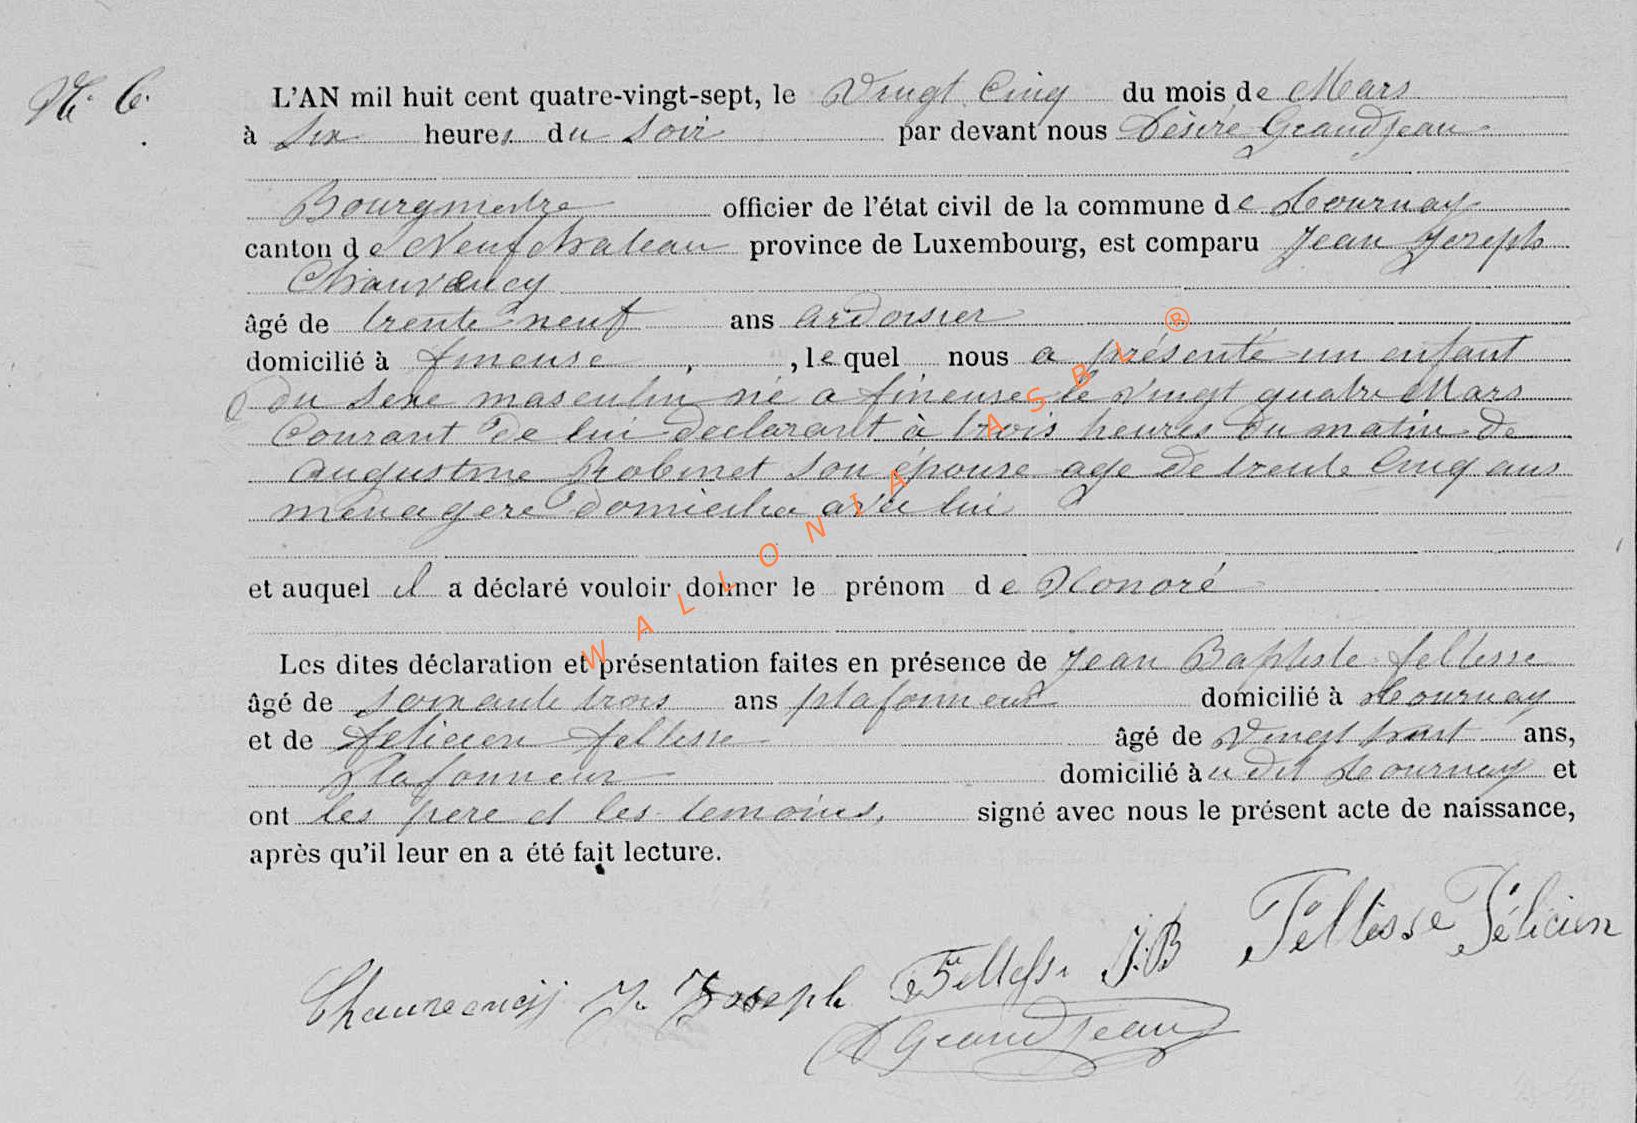 N° 6.
L'AN mil huit cent quatre-vingt-sept, le Vingt Cinq du mois de Mars
à Six heures du soir par devant nous Désiré Grandjean
Bourgmestre officier de l'état civil de la commune de Tournay
canton de Neufchateau province de Luxembourg, est comparu Jean Joseph
Chauvency
âgé de trente neuf ans ardoisier
domicilié à fineuse, lequel nous a présenté un enfant
du sexe masculin né a fineuse le vingt quatre Mars
Courant de lui déclarant à trois heures du matin de
augustine Robinet son épouse age de trente Cinq ans
menagere domicilia avec lui
et auquel il a déclaré vouloir donner le prénom de Honoré
Les dites déclaration et présentation faites en présence de Jean Baptiste feltesse
âgé de soixante trois ans plafonneur domicilié à Tournay
et de félicien feltesse âgé de Vingt huit ans,
Plafonneur domicilié audit Tournay et
ont les pere et les temoins, signé avec nous le présent acte de naissance,
après qu'il leur en a été fait lecture.
Chauvency J. Joseph Feltesse J.B Feltesse Félicien
D Grandjean
WALLONIA ASBL ®